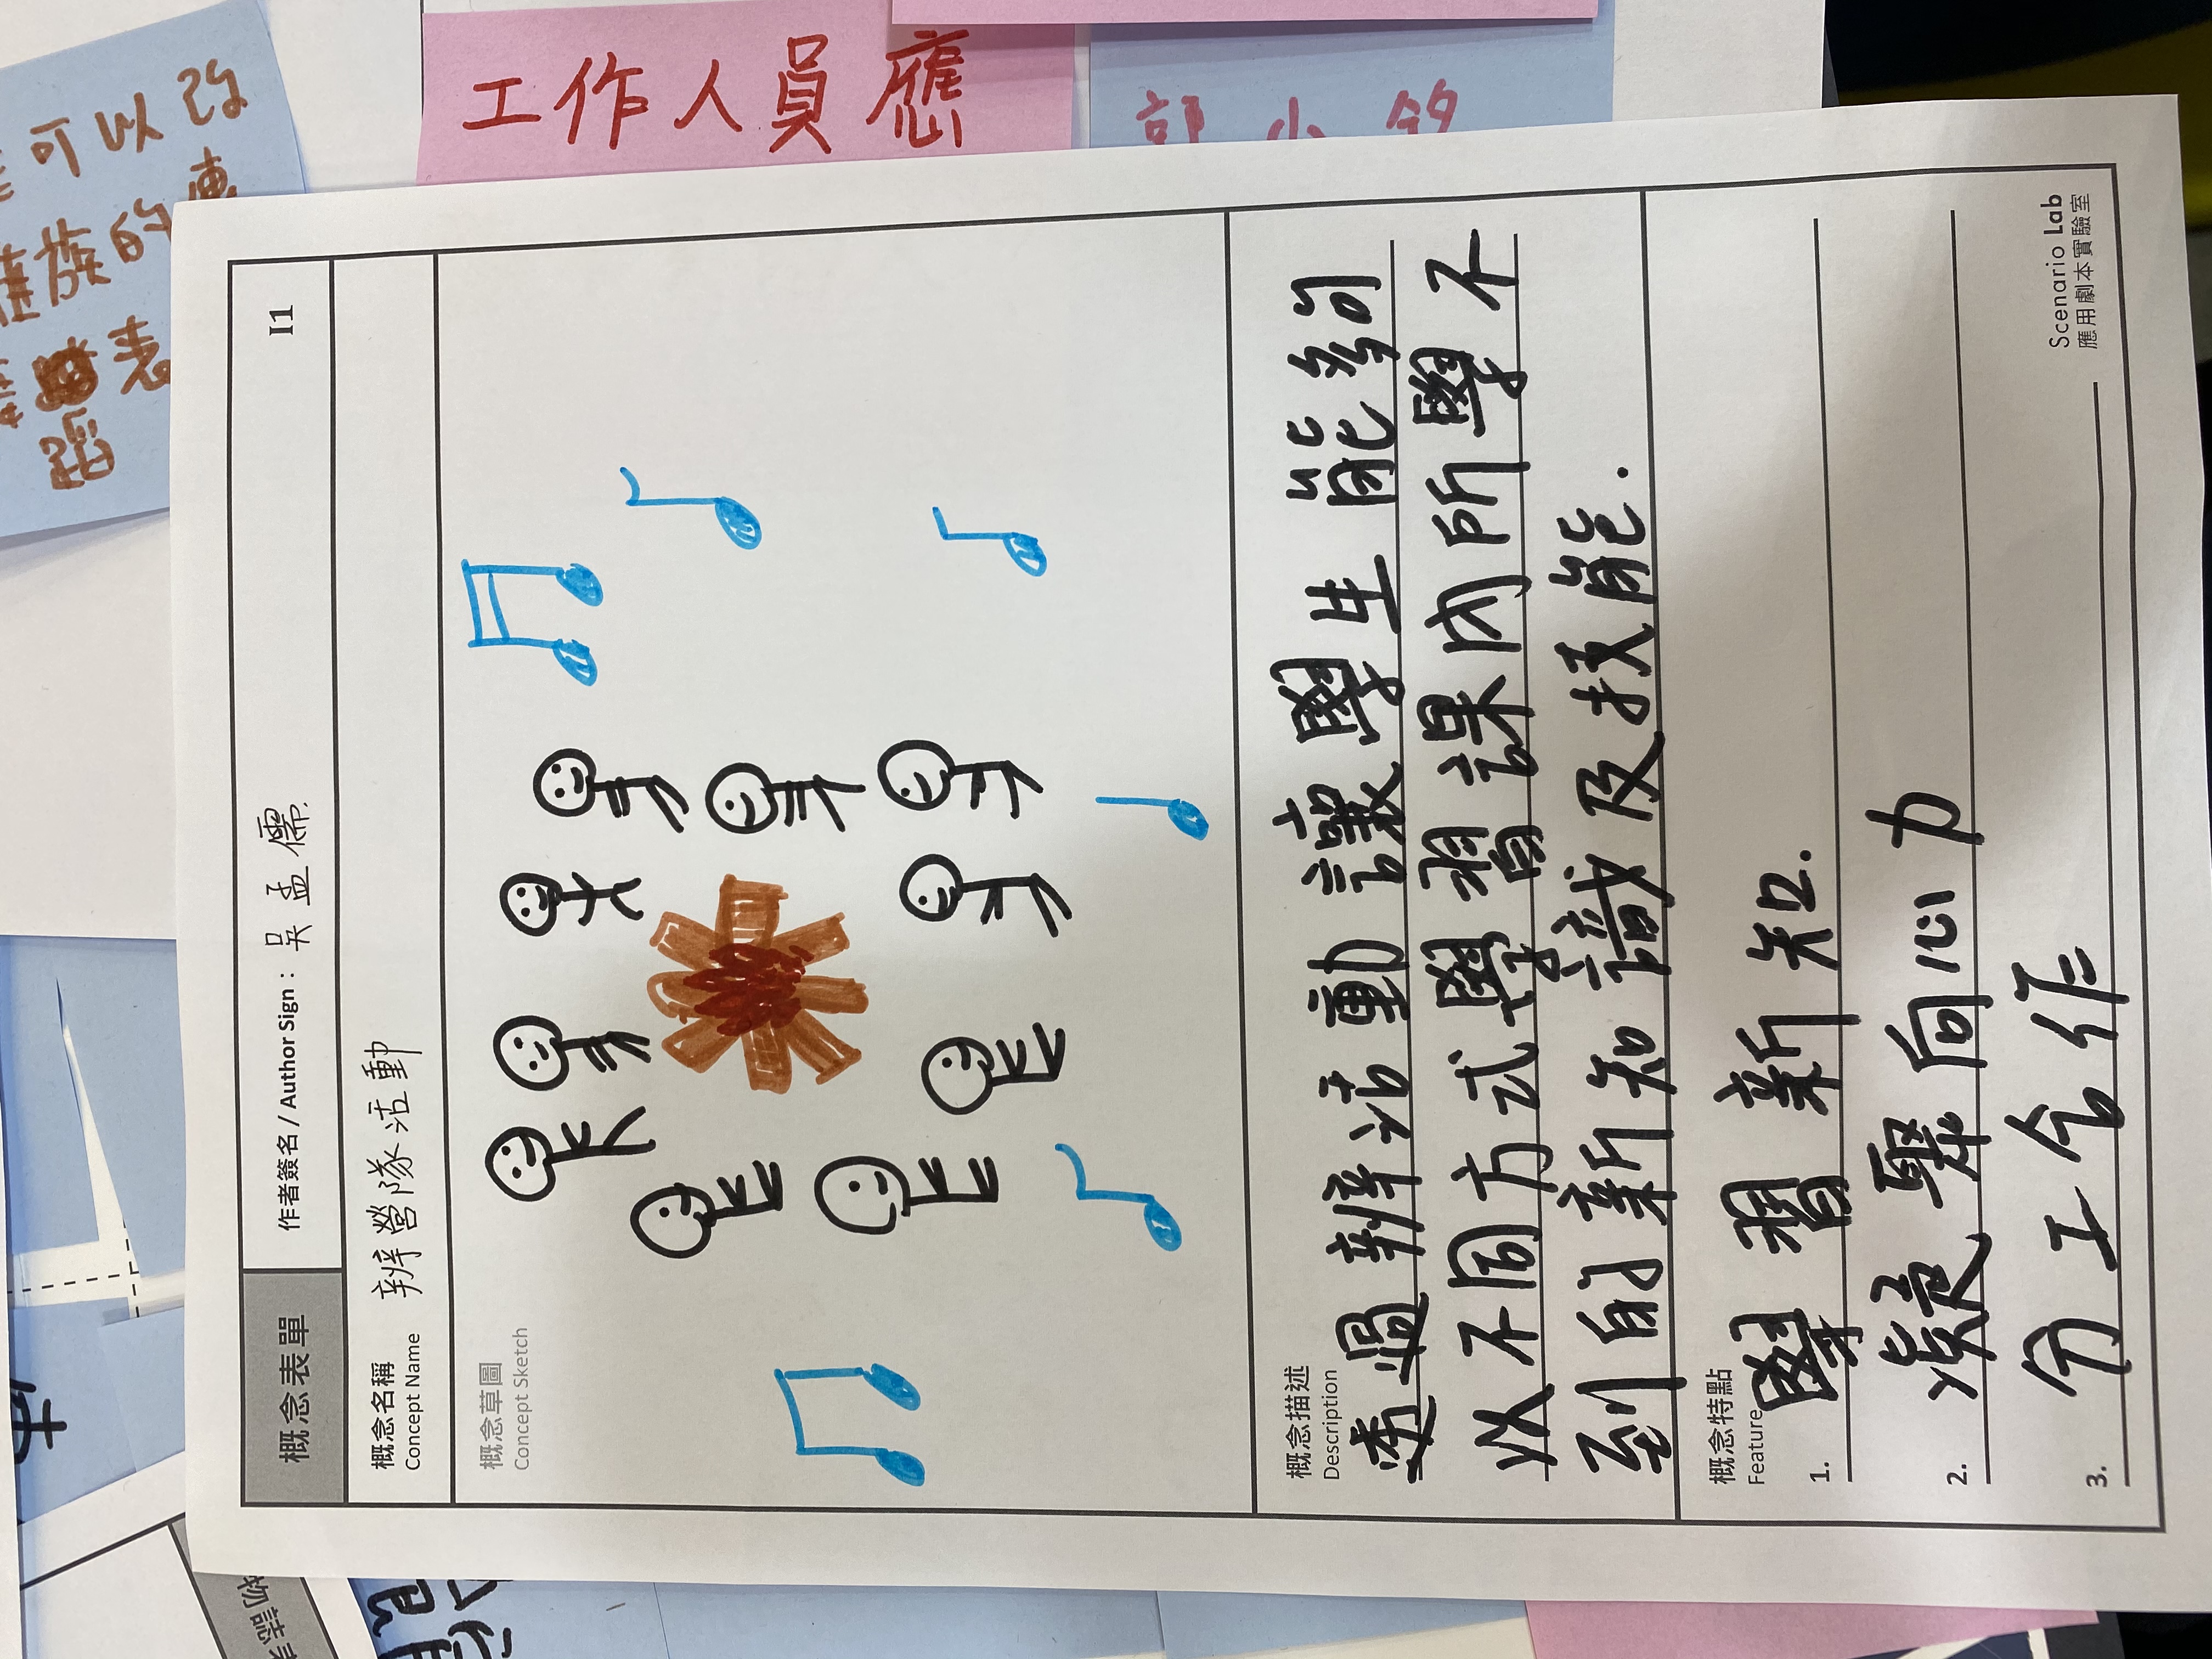 概念表單
作者簽名 / Author Sign：吳孟儒
I1
概念名稱
Concept Name
辨營隊活動
概念草圖
Concept Sketch
概念描述
Description
透過辨活動讓學生能夠
以不同方式學習課內所學不
到的新知識及技能.
概念特點
Feature
1. 學習新知.
2. 凝聚向心力
3. 分工合作
Scenario Lab
應用劇本實驗室
工作人員應
可以
的
物誌
部
小
的